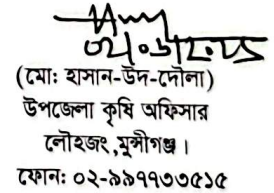 (মো: হাসান-উদ-দৌলা)
উপজেলা কৃষি অফিসার
লৌহজং,মুন্সীগঞ্জ।
ফোন: ০২-৯৯৭৭৩৩৫১৫